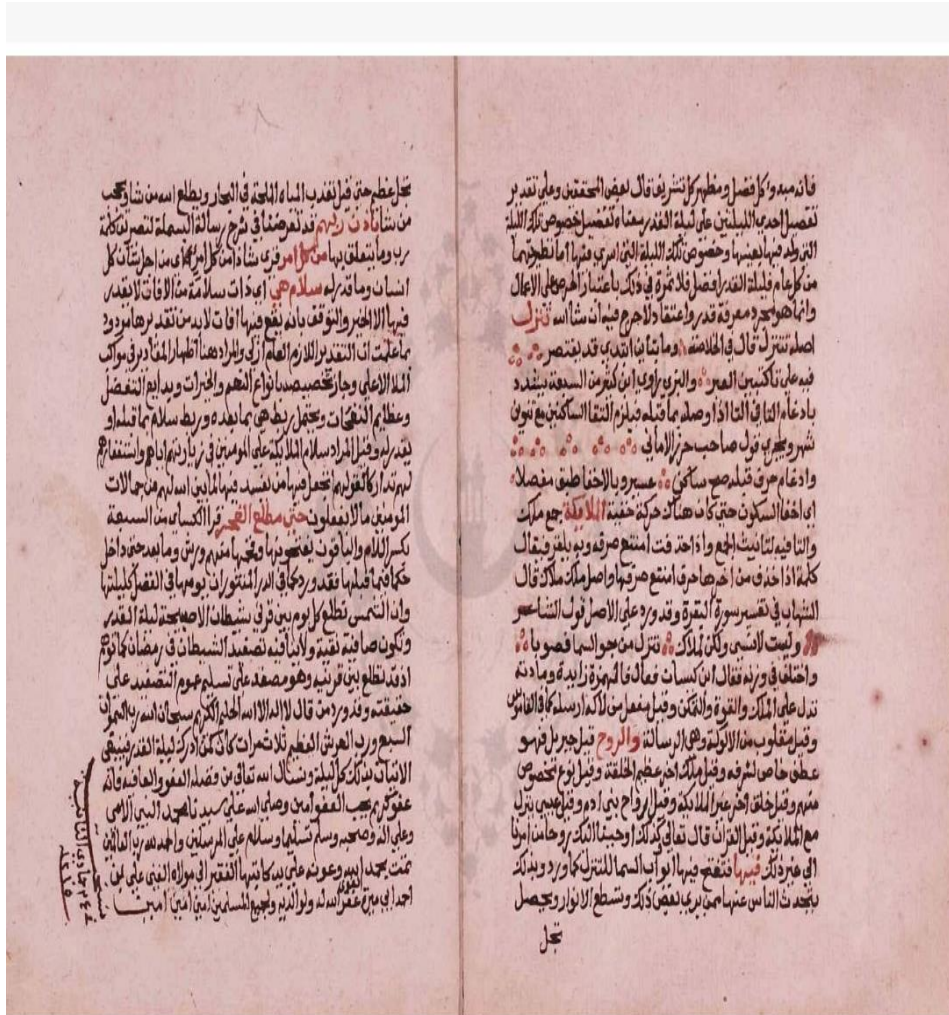 فانه مبدو كل فضل ومظهر كل تشريف قال بعض المحققين وعلى تقدير
تفضيل احدى الليلتين على ليلة القدر معناه تفضيل خصوص تلك الليلة
التي ولد فيها بعينها وخصوص تلك الليلة التي اسري فيها اما نظيرتهما
من كل عام فليلة القدر افضل فلا ثمرة في ذلك باعتبار الحرص على الاعمال
وانما هو مجرد معرفة قدر واعتقاد لا حرج فيه ان شا الله تنزل
اصله تتنزل قال في الخلاصة وما بتاين ابتدي قد يقتصر
فيه على تا كتبين العبر والبزي راوي ابن كثير من السبعة يشدد
بادغام التا في التا اذا وصله بما قبله فيلزم التقا الساكنين مع تنوين
شهر ويجري قول صاحب حرز الاماني
وادغام حرف قبله صح ساكن عسير وبالاخفا طبق مفصلا
اي اخفا السكون حتى كان هناك حركة خفية الملايكة جمع ملك
والتا فيه لتانيث الجمع واذا حذفت امتنع صرفه وبه يلغز فيقال
كلمة اذا حذف من اخرها حرف امتنع صرفها واصل ملك ملاك قال
الشهاب في تفسير سورة البقرة وقد ورد على الاصل قول الشاعر
ولست لانسي ولكن لملاك تنزل من جو السما يصوب
واختلف في وزنه فقال ابن كيسان فعال فالهمزة زايدة ومادته
تدل على الملك والقوة والتمكن وقيل مفعل من لاكه ارسله كما في القاموس
وقيل مقلوب من الالوكة وهي الرسالة والروح قيل جبريل فهو
عطف خاص لشرفه وقيل ملك اخر عظيم الخلقة وقيل نوع مخصوص
منهم وقيل خلق اخر غير الملايكة وقيل ارواح بني ادم وقيل عيسى ينزل
مع الملايكة وقيل القران قال تعالى كذلك اوحينا اليك روحا من امرنا
الى غير ذلك فيها فتفتح فيها ابواب السما للتنزل كما ورد وبذلك
يتحدث الناس عنها ممن يري بعض ذلك وتسطع الانوار ويحصل
تجل
تجل عظيم حتى قيل تعذب المياه الملحة في البحار ويطلع الله من شا ويحجب
من شا باذن ربهم قد تعرضنا في شرح رسالة البسملة لتصريف كلمة
رب وما يتعلق بها من كل امر قري شاذا من كل امرئ اي من اجل شان كل
انسان وما قدر له سلام هي اي ذات سلامة من الافات لا يقدر
فيها الا الخير والتوقف بانه يقع فيها افات لا بد من تقديرها مردود
بما علمت ان التقدير اللازم العام ازلي والمراد هنا اظهار المقادير في مواكب
الملا الاعلى وجاز تخصيصه بانواع النعم والخيرات وبدايع التفضل
وعظايم النفحات ويحتمل ربط هي بما بعده وربط سلام بما قبله او
يقدر له وقيل المراد سلام الملايكة على المومنين في زيارتهم اياهم واستغفارهم
لهم تداركا لقولهم تجعل فيها من يفسد فيها لما بين الله لهم من حالات
المومنين ما لا يعلمون حتى مطلع الفجر قرا الكساي من السبعة
بكسر اللام والباقون بفتحها ومنهم ورش وما بعد حتى داخل
حكما فيما قبلها فقد ورد كما في الدر المنثور ان يومها في الفضل كليلتها
وان الشمس تطلع كل يوم بين قرني شيطان الا صبيحة ليلة القدر
وتكون صافية نقية ولا ينافيه تصفيد الشيطان في رمضان كما توهم
اذ قد تطلع بين قرنيه وهو مصفد على تسليم عموم التصفيد على
حقيقته وقد ورد من قال لا اله الا الله الحليم الكريم سبحان الله رب السموات
السبع ورب العرش العظيم ثلاث مرات كان كمن ادرك ليلة القدر فينبغي
الاتيان بذلك كل ليلة ونسال الله تعالى من فضله العفو والعافية فانه
عفو كريم يحب العفو امين وصلى الله على سيدنا محمد النبي الامي
وعلى اله وصحبه وسلم تسليما وسلام على المرسلين والحمد لله رب العالمين
تمت بحمد الله وعونه على يد كاتبها الفقير الى مولاه الغني علي بن
احمد غفر الله له ولوالديه ولجميع المسلمين امين امين امين